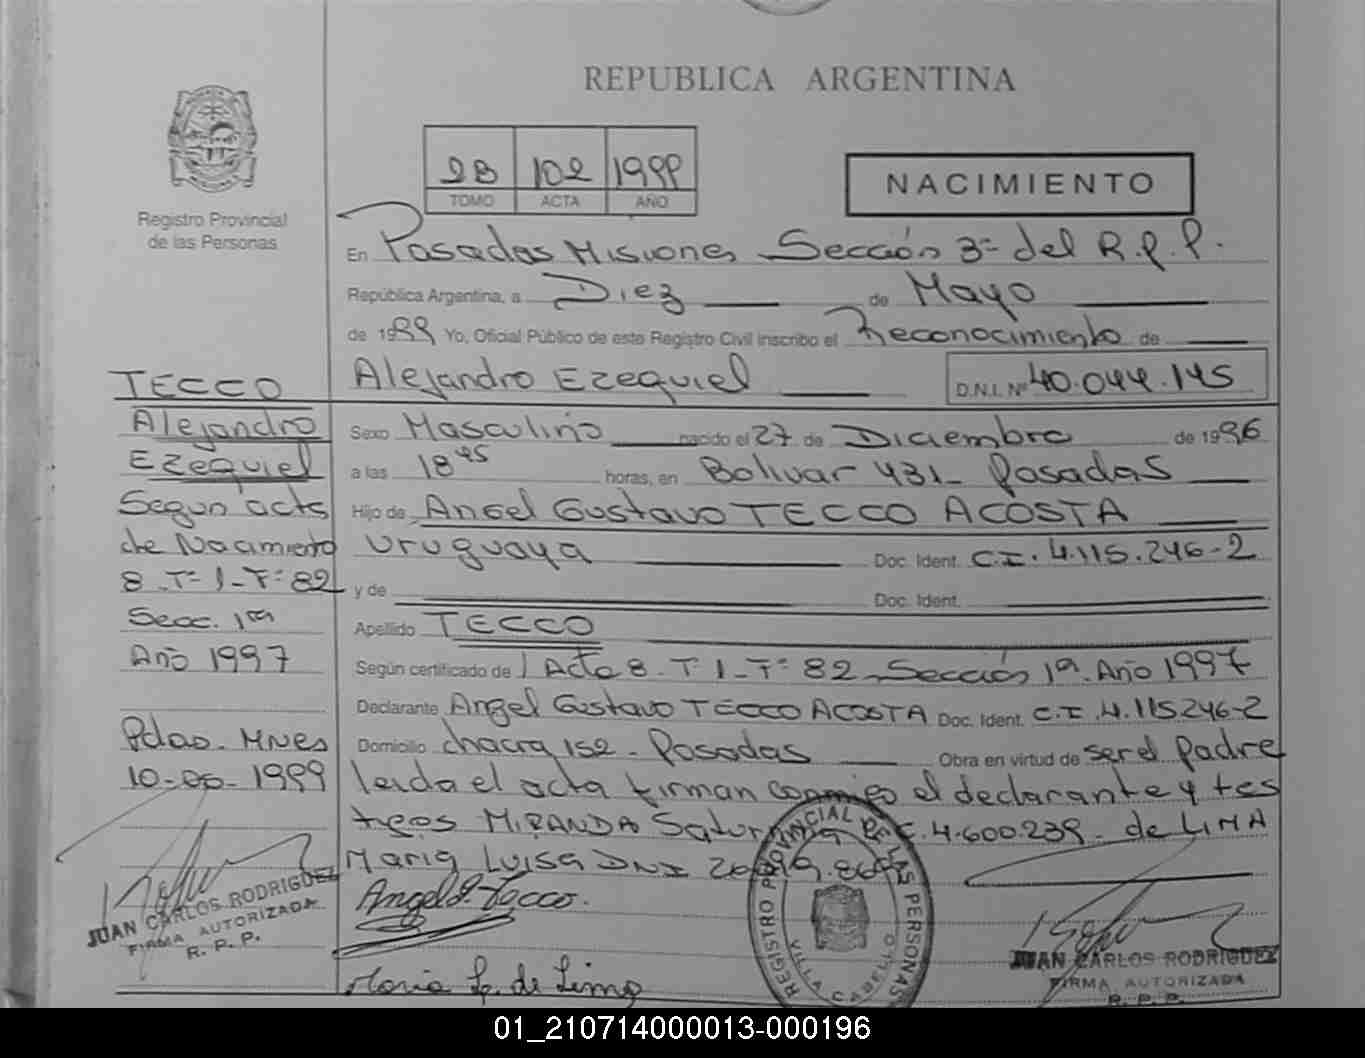 REPUBLICA ARGENTINA
Registro Provincial
de las Personas
2B 102 1999
TOMO ACTA AÑO
NACIMIENTO
En Posadas Misiones Sección 3ª del R.P.P.
República Argentina, a Diez de Mayo
de 1999 Yo, Oficial Público de este Registro Civil inscribo el Reconocimiento de
Alejandro Ezequiel D.N.I. Nº 40.044.145
Sexo Masculino nacido el 27 de Diciembre de 1996
a las 18 45 horas, en Bolivar 431_ Posadas
Hijo de Angel Gustavo TECCO ACOSTA
Uruguaya Doc. Ident. C.I. 4.115.246-2
y de Doc. Ident.
Apellido TECCO
Según certificado de Acta 8. Tº 1 _ Fº 82 _ Sección 1ª. Año 1997
Declarante Angel Gustavo TECCO ACOSTA Doc. Ident. C.I. 4.115.246-2
Domicilio chacra 152 - Posadas Obra en virtud de ser el padre
leida el acta firman conmigo el declarante y tes
tigos MIRANDA 4.600.239 - de LIMA
Maria Luisa DNI
TECCO
Alejandro
Ezequiel
Segun acta
de Nacimiento
8 - Tº 1 - Fº 82
Secc. 1ra
Año 1997
Pdas. Mnes
1999
JUAN CARLOS RODRIGUEZ
FIRMA AUTORIZADA
R. P. P.
Angel G. Tecco.
Maria L. de Lima
REGISTRO PROVINCIAL DE LAS PERSONAS
VILLA CABELLO
JUAN CARLOS RODRIGUEZ
FIRMA AUTORIZADA
R. P. P.
01_210714000013-000196